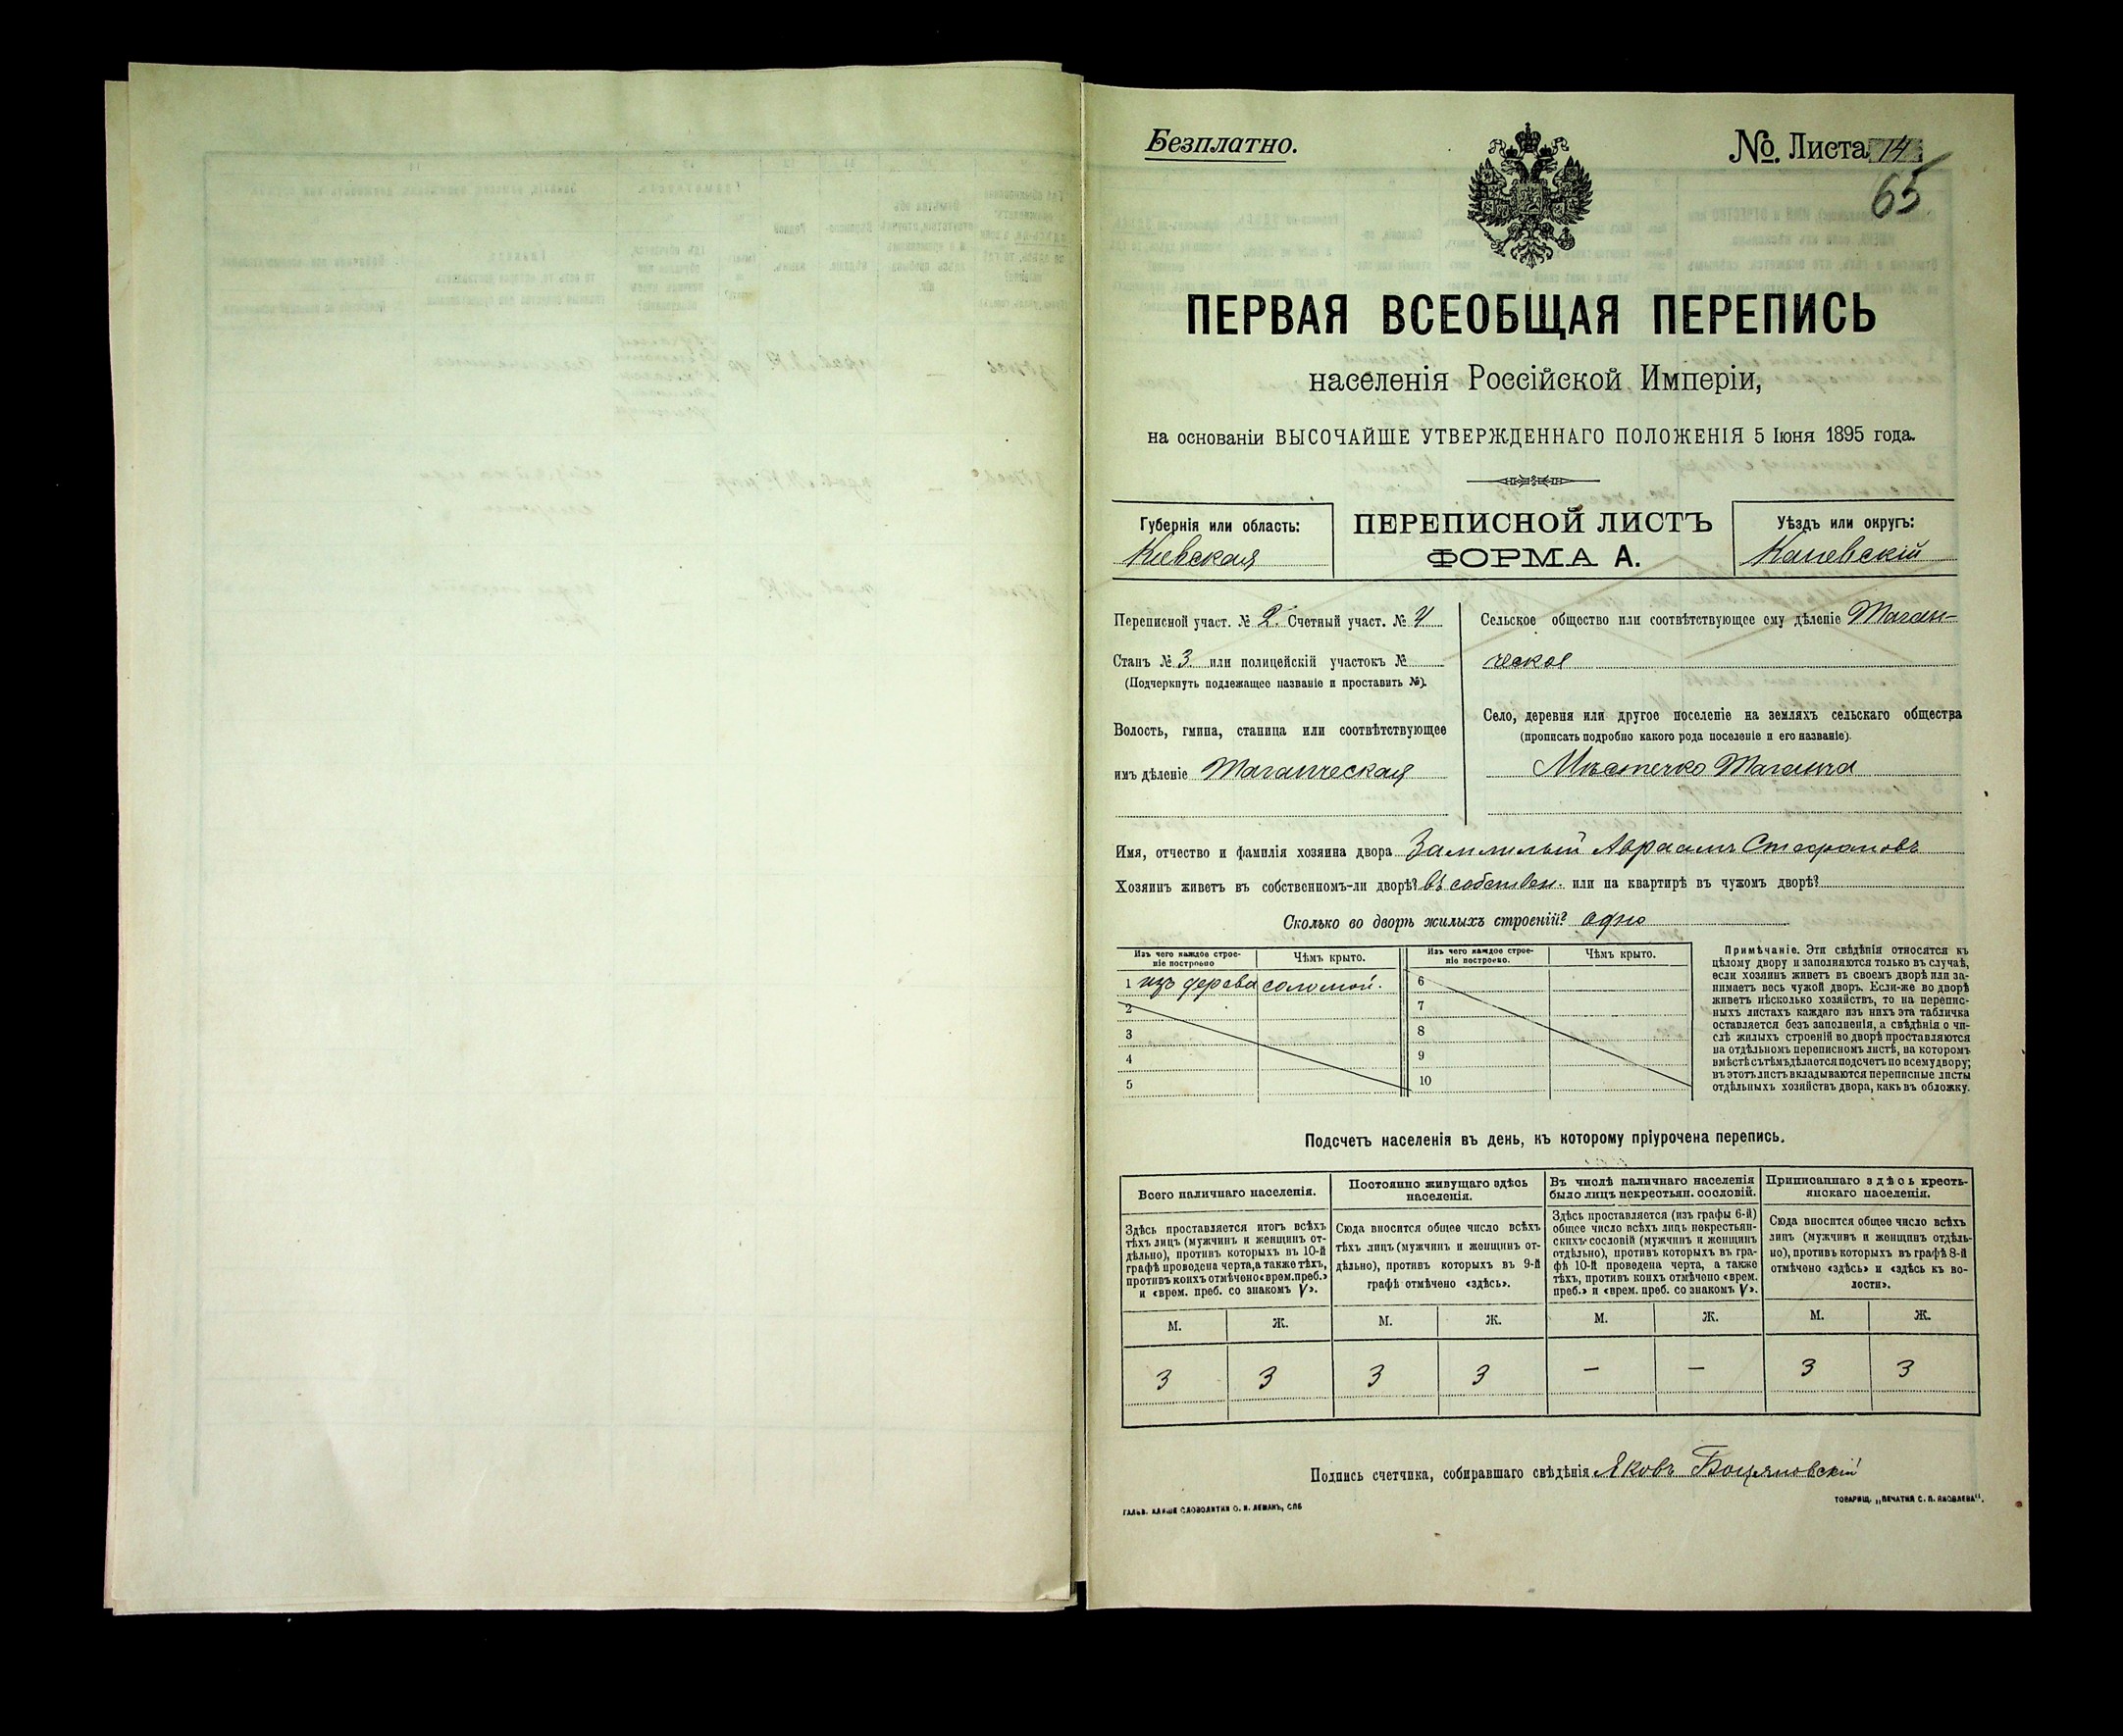 Безплатно.
№. Листа 14
65
ПЕРВАЯ ВСЕОБЩАЯ ПЕРЕПИСЬ
населенія Россійской Имперіи,
на основаніи ВЫСОЧАЙШЕ УТВЕРЖДЕННАГО ПОЛОЖЕНІЯ 5 Іюня 1895 года.
Губернія или область:
Кіевская
ПЕРЕПИСНОЙ ЛИСТЪ
ФОРМА А.
Уѣздъ или округъ:
Каневскій
Переписной участ. № 2. Счетный участ. № 4
Станъ № 3 или полицейскій участокъ №
(Подчеркнуть подлежащее названіе и проставить №).
Волость, гмина, станица или соотвѣтствующее
имъ дѣленіе Таганческая
Сельское общество или соотвѣтствующее ему дѣленіе Таган-
ческое
Село, деревня или другое поселеніе на земляхъ сельскаго общества
(прописать подробно какого рода поселеніе и его названіе).
Мѣстечко Таганча
Имя, отчество и фамилія хозяина двора Авраамъ Стефановъ
Хозяинъ живетъ въ собственномъ-ли дворѣ? въ собствен. или на квартирѣ въ чужомъ дворѣ?
Сколько во дворѣ жилыхъ строеній? одно
Изъ чего каждое строе-
ніе построено
Чѣмъ крыто.
Изъ чего каждое строе-
ніе построено.
Чѣмъ крыто.
1 изъ дерева соломой. 6
2 7
3 8
4 9
5 10
Примѣчаніе. Эти свѣдѣнія относятся къ
цѣлому двору и заполняются только въ случаѣ,
если хозяинъ живетъ въ своемъ дворѣ или за-
нимаетъ весь чужой дворъ. Если-же во дворѣ
живетъ нѣсколько хозяйствъ, то на перепис-
ныхъ листахъ каждаго изъ нихъ эта табличка
оставляется безъ заполненія, а свѣдѣнія о чи-
слѣ жилыхъ строеній во дворѣ проставляются
на отдѣльномъ переписномъ листѣ, на которомъ
вмѣстѣ съ тѣмъ дѣлается подсчетъ по всему двору;
въ этотъ листъ вкладываются переписные листы
отдѣльныхъ хозяйствъ двора, какъ въ обложку.
Подсчетъ населенія въ день, къ которому пріурочена перепись.
Всего наличнаго населенія.
Здѣсь проставляется итогъ всѣхъ
тѣхъ лицъ (мужчинъ и женщинъ от-
дѣльно), противъ которыхъ въ 10-й
графѣ проведена черта, а также тѣхъ,
противъ коихъ отмѣчено «врем. преб.»
и «врем. преб. со знакомъ V».
Постоянно живущаго здѣсь
населенія.
Сюда вносится общее число всѣхъ
тѣхъ лицъ (мужчинъ и женщинъ от-
дѣльно), противъ которыхъ въ 9-й
графѣ отмѣчено «здѣсь».
Въ числѣ наличнаго населенія
было лицъ некрестьян. сословій.
Здѣсь проставляется (изъ графы 6-й)
общее число всѣхъ лицъ некрестьян-
скихъ сословій (мужчинъ и женщинъ
отдѣльно), противъ которыхъ въ гра-
фѣ 10-й проведена черта, а также
тѣхъ, противъ коихъ отмѣчено «врем.
преб.» и «врем. преб. со знакомъ V».
Приписаннаго здѣсь кресть-
янскаго населенія.
Сюда вносится общее число всѣхъ
лицъ (мужчинъ и женщинъ отдѣль-
но), противъ которыхъ въ графѣ 8-й
отмѣчено «здѣсь» и «здѣсь къ во-
лости».
М. Ж. М. Ж. М. Ж. М. Ж.
3 3 3 3 — — 3 3
Подпись счетчика, собиравшаго свѣдѣнія Яковъ Боцяновскій
ГАЛЬВ. КЛИШЕ СЛОВОЛИТНИ О. И. ЛЕМАНЪ, СПБ
ТОВАРИЩ. „ПЕЧАТНЯ С. П. ЯКОВЛЕВА".